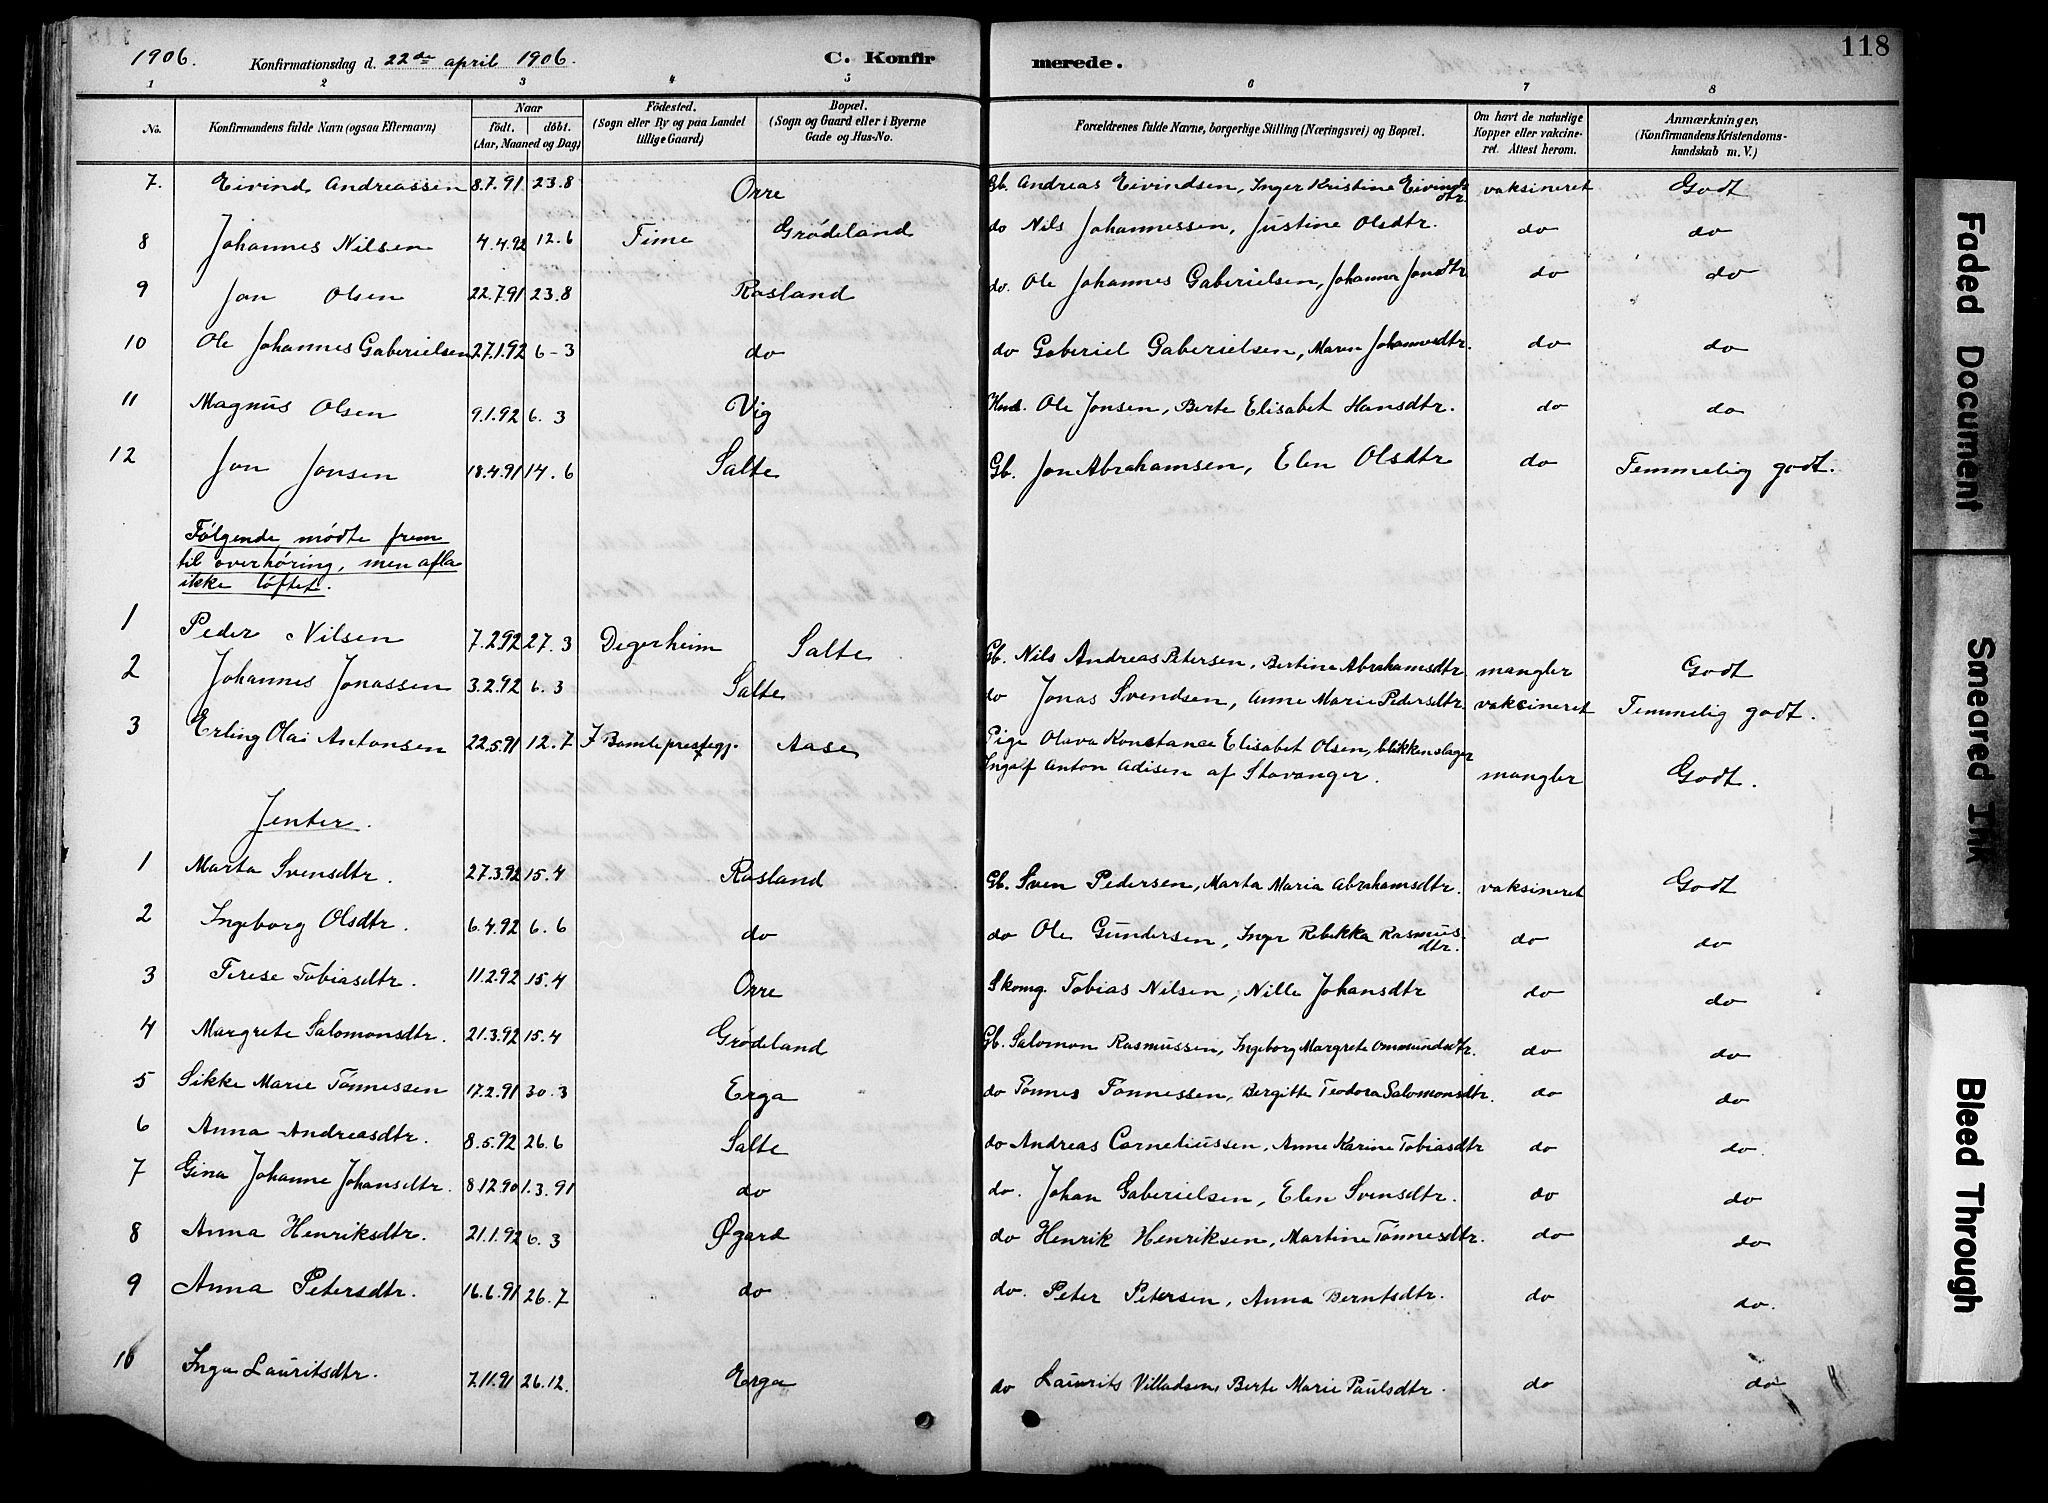 118
1906. Konfirmationsdag d. 22de april 1906. C. Konfirmerede.
1 2 3 4 5 6 7 8
No. Konfirmandens fulde Navn (ogsaa Efternavn) Naar födt. döbt. (Aar, Maaned og Dag) Födested. (Sogn eller By og paa Landet tillige Gaard) Bopæl. (Sogn og Gaard eller i Byerne Gade og Hus-No. Forældrenes fulde Navne, borgerlige Stilling (Næringsvei) og Bopæl. Om havt de naturlige Kopper eller vakcineret. Attest herom. Anmærkninger. (Konfirmandens Kristendomskundskab m. V.)
7. Eivind Andreassen 8.7.91 23.8 Orre Gb. Andreas Eivindsen, Inger Kristine Eivindsdtr. vaksineret Godt
8 Johannes Nilsen 4.4.92 12.6 Time Grødeland do Nils Johannessen, Justine Olsdtr. do do
9 Jon Olsen 22.7.91 23.8 Rosland do. Ole Johannes Gaberielsen, Johanna Jonsdtr do do
10 Ole Johannes Gaberielsen 27.1.92 6-3 do do Gaberiel Gaberielsen, Maren Johannesdtr. do do
11 Magnus Olsen 9.1.92 6.3 Vig Husm. Ole Jonsen, Berte Elisabet Hansdtr. do do
12 Jon Jonsen 18.4.91 14.6 Salte Gb. Jon Abrahamsen, Elen Olsdtr do Temmelig godt.
Følgende mødte frem
til overhøring, men afla
ikke løftet.
1 Peder Nilsen 7.2.92 27.3 Degerheim Salte Gb. Nils Andreas Petersen, Bertine Abrahamsdtr mangler Godt
2 Johannes Jonassen 3.2.92 6.3 Salte do Jonas Svendsen, Anne Marie Pedersdtr. vaksineret Temmelig godt.
3 Erling Olai Antonsen 22.5.91 12.7 I Bamle prestegj. Aase Pige Olava Konstance Elisabet Olsen, blikkenslager
Ingolf Anton Adisen af Stavanger. mangler Godt.
Jenter.
1 Marta Svensdtr. 27.3.92 15.4 Rosland Gb. Sven Pedersen, Marta Maria Abrahamsdtr. vaksineret Godt
2 Ingeborg Olsdtr. 6.4.92 6.6 do do Ole Gundersen, Inger Rebekka Rasmusdtr. do do
3 Terese Tobiasdtr. 11.2.92 15.4 Orre Skomg. Tobias Nilsen, Nille Johansdtr do do
4 Margrete Salomonsdtr. 21.3.92 15.4 Grødeland Gb. Salomon Rasmussen, Ingeborg Margrete Ommundsdtr. do do
5 Sikke Marie Tønnessen 17.2.91 30.3 Erga do Tønnes Tønnessen, Bergitte Teodora Salomonsdtr. do do
6 Anna Andreasdtr. 8.5.92 26.6 Salte do Andreas Corneliussen, Anne Karine Tobiasdtr do do.
7 Gina Johanne Johansdtr. 8.12.90 1.3.91 do do. Johan Gaberielsen, Elen Svensdtr. do do
8 Anna Henriksdtr. 21.1.92 6.3 Øgard do Henrik Henriksen, Martine Tønnesdtr. do do
9 Anna Petersdtr. 16.6.91 26.7 do do. Peter Petersen, Anna Berntsdtr. do do.
10 Inga Lauritsdtr. 7.11.91 26.12. Erga do Laurits Villadsen, Berte Marie Paulsdtr. do do
Faded Document
Smeared Ink
Bleed Through